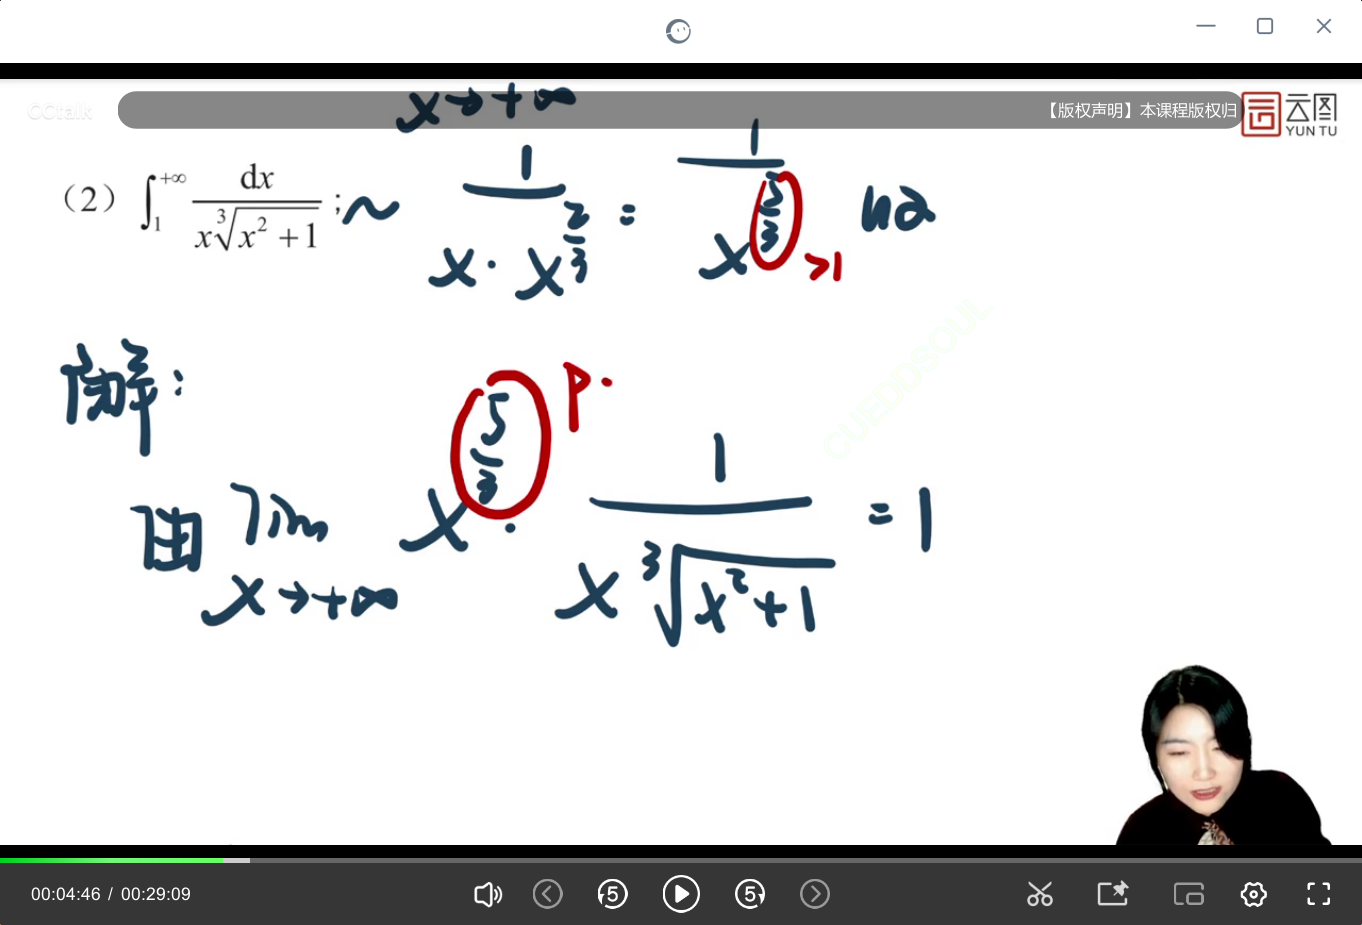 x→+∞
CCtalk
【版权声明】本课程版权归
云图
YUN TU
(2) ∫₁^{+∞} dx / (x∛(x²+1)) ; ~ 1 / (x · x^{2/3}) = 1 / x^{5/3} >1 收敛
CUEDDSOUL
解：
P·
由 lim_{x→+∞} x^{5/3} · 1 / (x∛(x²+1)) = 1
00:04:46 / 00:29:09
5 5